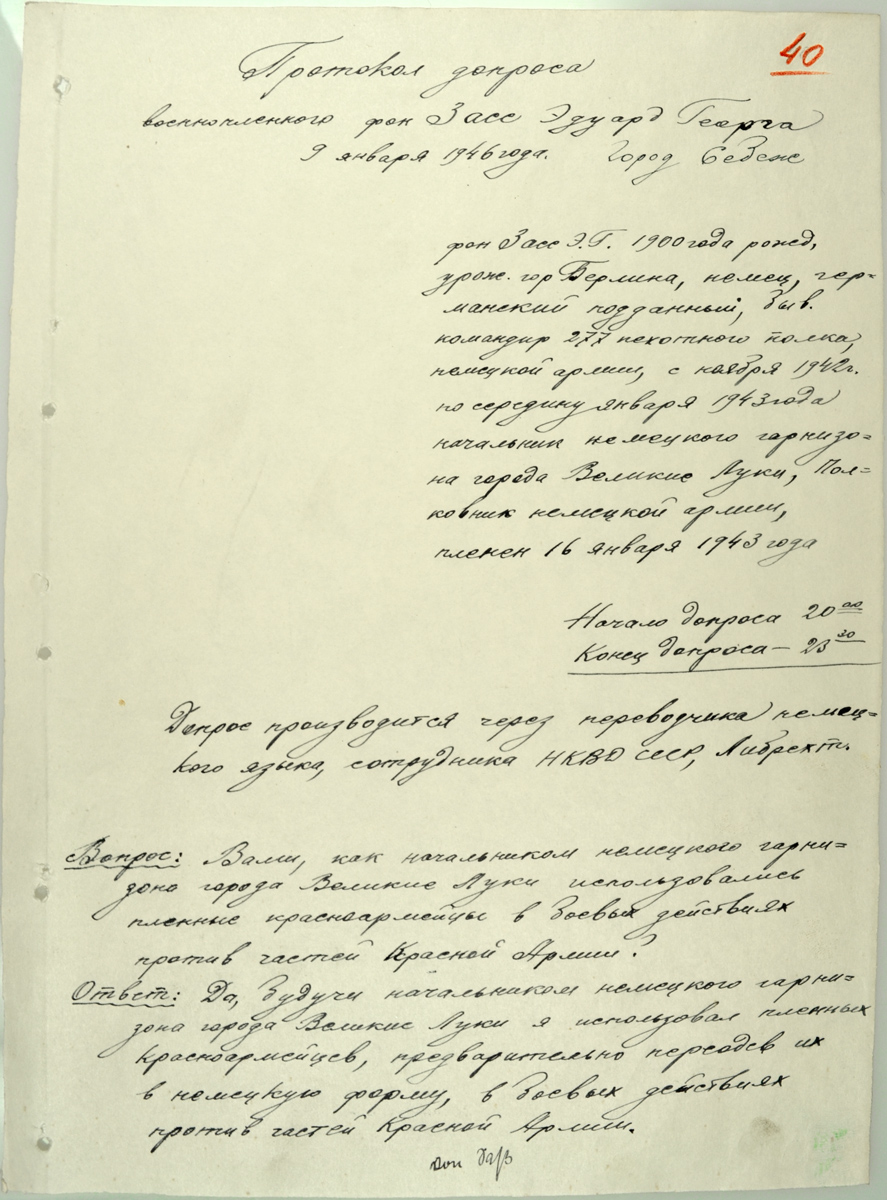 40
Протокол допроса
военнопленного фон Засс Эдуард Георга
9 января 1946 года. Город Себеж
фон Засс Э.Г. 1900 года рожд,
урож. гор Берлина, немец, гер=
манский подданный, быв.
командир 277 пехотного полка,
немецкой армии, с ноября 1942 г.
по середину января 1943 года
начальник немецкого гарнизо=
на города Великие Луки, Пол=
ковник немецкой армии,
пленен 16 января 1943 года
Начало допроса 20 00
Конец допроса – 23 30
Допрос производится через переводчика немец=
кого языка, сотрудника НКВД СССР, Либрехт.
Вопрос: Вами, как начальником немецкого гарни=
зона города Великие Луки использовались
пленные красноармейцы в боевых действиях
против частей Красной Армии?
Ответ: Да, будучи начальником немецкого гарни=
зона города Великие Луки я использовал пленных
Красноармейцев, предварительно переодев их
в немецкую форму, в боевых действиях
против частей Красной Армии.
von Saß